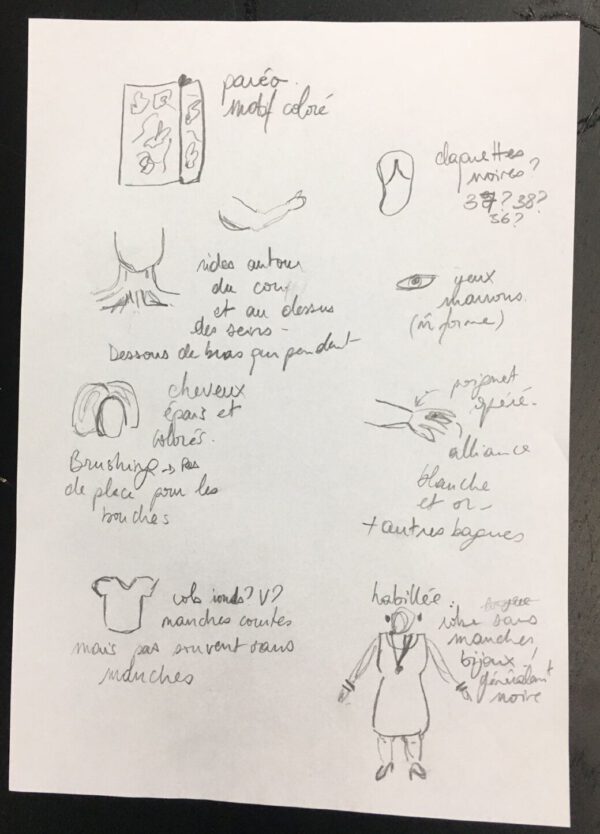 paréo.
motif coloré
claquettes
noires?
37? 38?
36?
rides autour
du cou
et au dessus
des seins -
Dessous de bras qui pendent
yeux
marrons.
(m̂ forme)
cheveux
épais et
colorés.
Brushing → Pas
de place pour les
bouches
poignet
opéré.
alliance
blanche
et or -
+ autres bagues
cols ronds? V?
manches courtes
mais pas souvent sans
manches
habillée:
robe sans
manches
bijoux!
généralement
noire